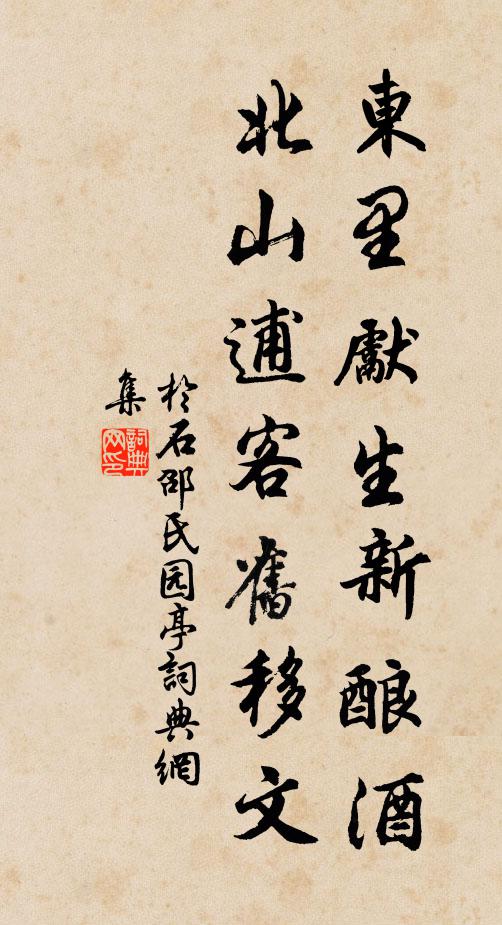 東里獻生新酿酒
北山逋客舊移文
於石邵氏园亭詞典網
集
詞典網印